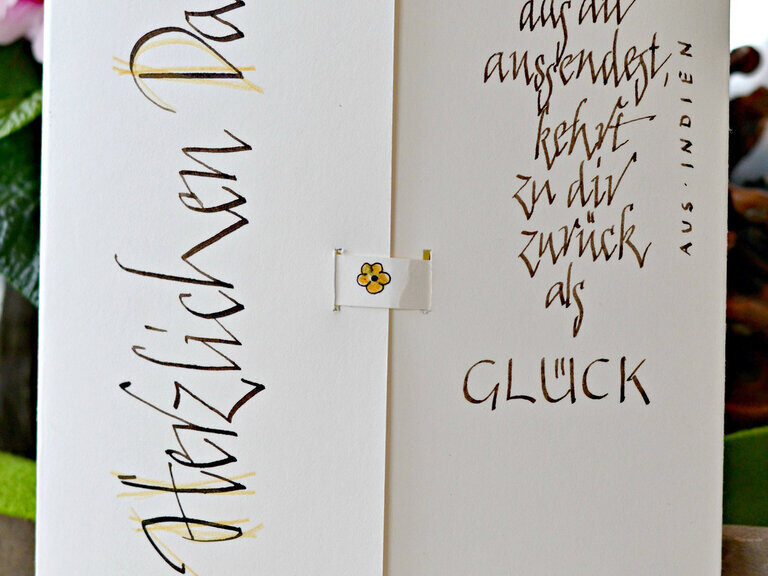 Herzlichen Da
das du
aussendest,
kehrt
zu dir
zurück
als
GLÜCK
AUS·INDIEN